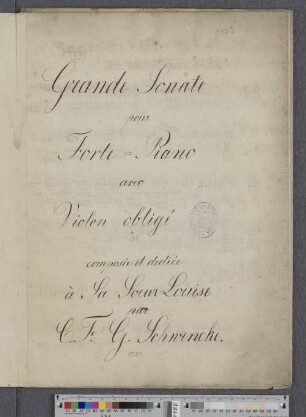 Grande Sonate
pour
Forte = Piano
avec
Violon obligé
composée et dediée
à Sa Soeur Louise
par
C. F. G. Schwencke.